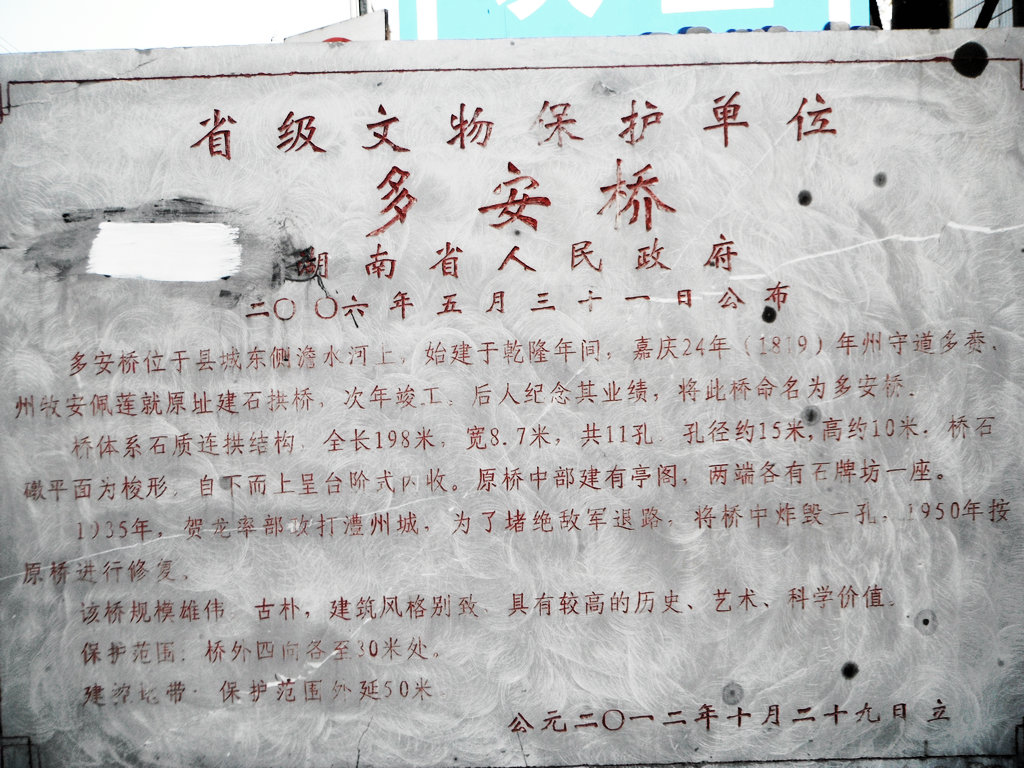 省级文物保护单位
多安桥
湖南省人民政府
二〇〇六年五月三十一日公布
多安桥位于县城东侧澹水河上，始建于乾隆年间，嘉庆24年（1819）年州守道多赉、
州牧安佩莲就原址建石拱桥，次年竣工。后人纪念其业绩，将此桥命名为多安桥。
桥体系石质连拱结构，全长198米，宽8.7米，共11孔，孔径约15米，高约10米。桥石
礅平面为梭形，自下而上呈台阶式内收。原桥中部建有亭阁，两端各有石牌坊一座。
1935年，贺龙率部攻打澧州城，为了堵绝敌军退路，将桥中炸毁一孔，1950年按
原桥进行修复。
该桥规模雄伟、古朴，建筑风格别致、具有较高的历史、艺术、科学价值。
保护范围：桥外四向各至30米处。
建控地带：保护范围外延50米
公元二〇一二年十月二十九日 立